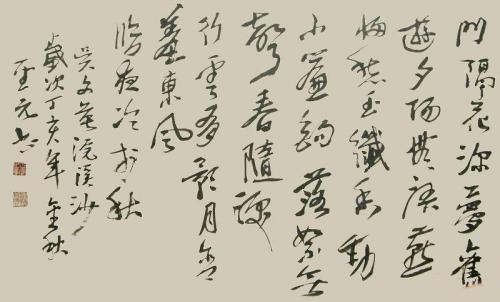 門隔花深夢舊
遊夕陽無語燕
歸愁玉纖香動
小簾鉤落絮無
聲春隨淚
行雲有影月含
羞東風
臨夜冷於秋
吳文英浣溪沙
歲次丁亥年金秋